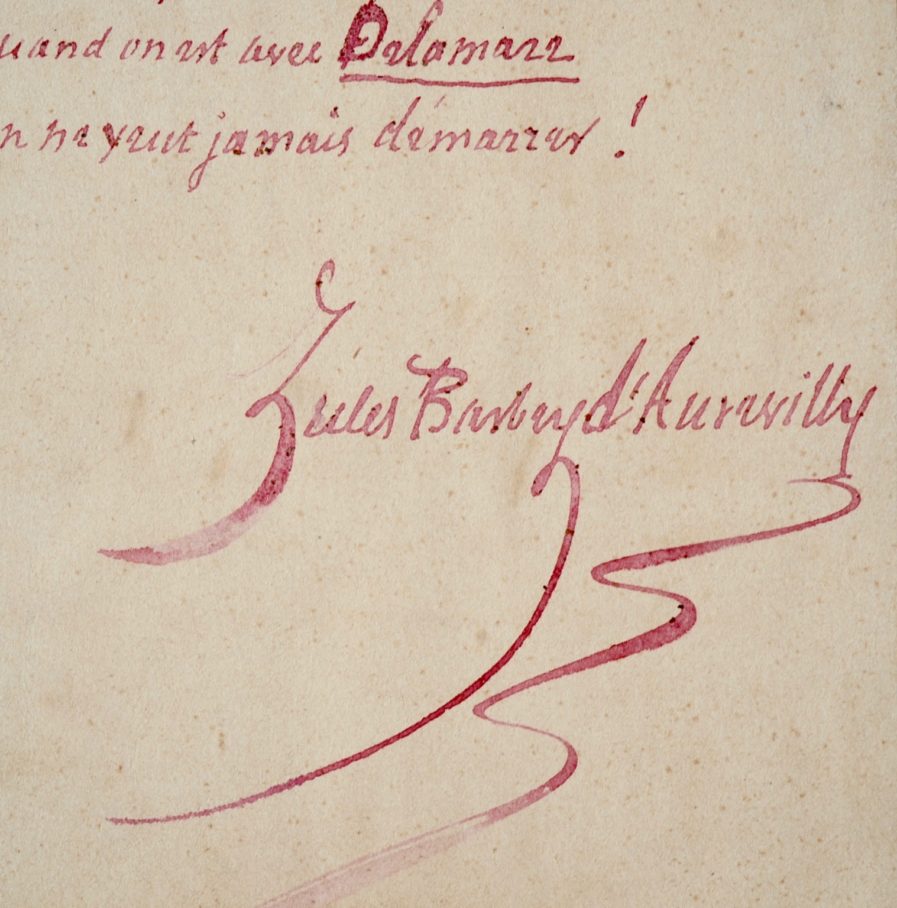 uand on est avec Delamare
n ne peut jamais démarrer !
Jules Barbey d'Aurevilly